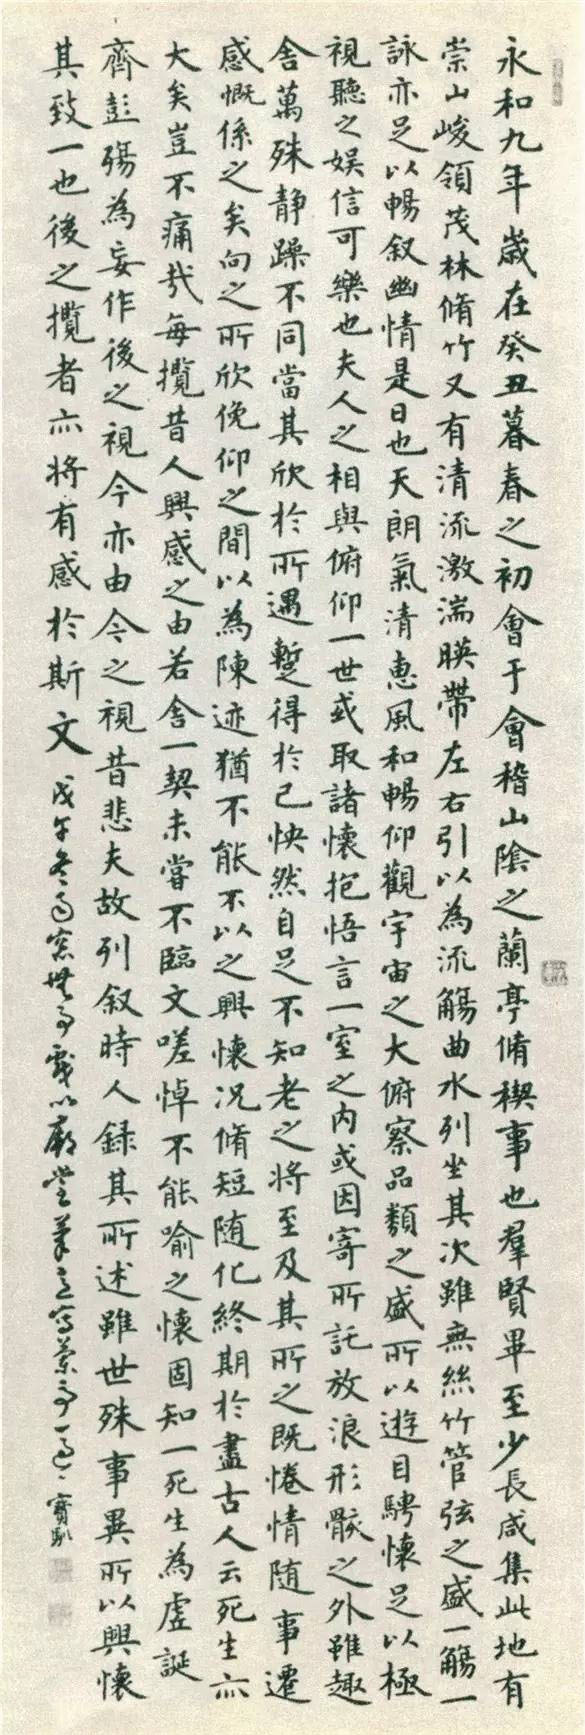 永和九年歲在癸丑暮春之初會于會稽山陰之蘭亭脩禊事也羣賢畢至少長咸集此地有
崇山峻領茂林脩竹又有清流激湍暎帶左右引以為流觴曲水列坐其次雖無絲竹管弦之盛一觴一
詠亦足以暢叙幽情是日也天朗氣清惠風和暢仰觀宇宙之大俯察品類之盛所以遊目騁懷足以極
視聽之娛信可樂也夫人之相與俯仰一世或取諸懷抱悟言一室之內或因寄所託放浪形骸之外雖趣
舍萬殊静躁不同當其欣於所遇蹔得於己怏然自足不知老之將至及其所之既惓情隨事遷
感慨係之矣向之所欣俛仰之間以為陳迹猶不能不以之興懷況脩短隨化終期於盡古人云死生亦
大矣豈不痛哉每攬昔人興感之由若合一契未嘗不臨文嗟悼不能喻之懷固知一死生為虛誕
齊彭殤為妄作後之視今亦由今之視昔悲夫故列叙時人錄其所述雖世殊事異所以興懷
其致一也後之攬者亦將有感於斯文 戊午冬窓無事戲以廟堂筆意寫蘭亭一過 寶熙